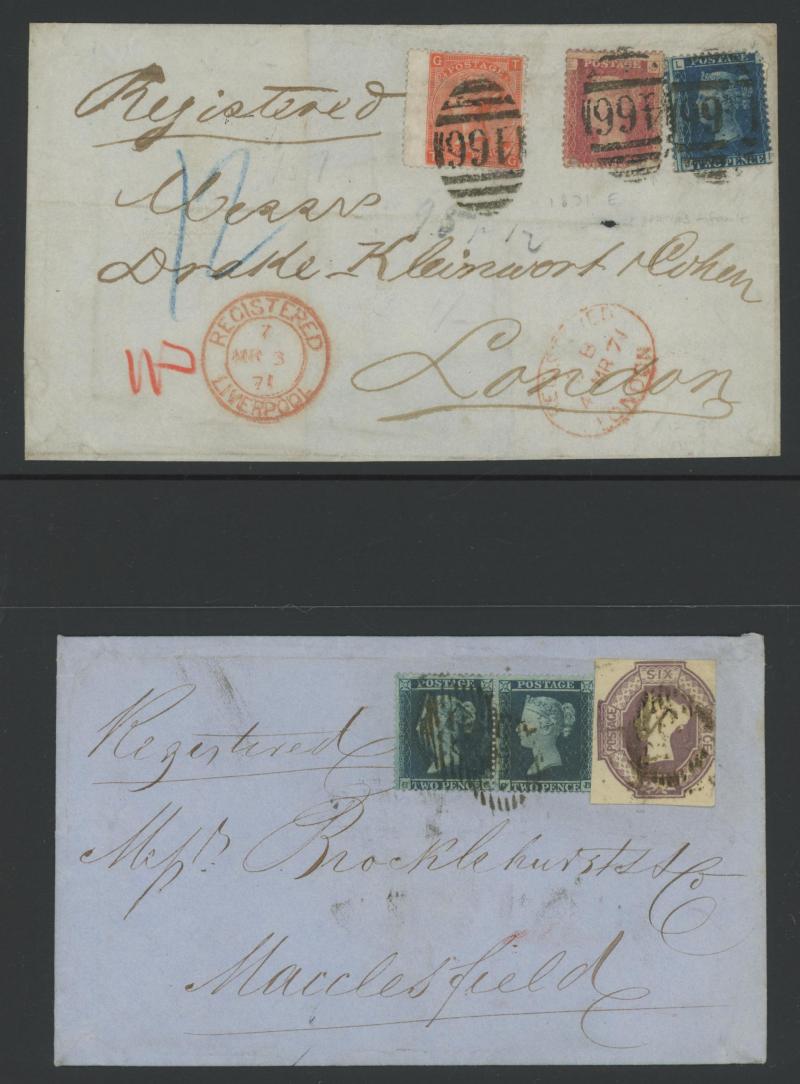 G POSTAGE T
T G
466
L POSTAGE
TWO PENCE
466
466
Registered
12
Messrs
Drake Kleinwort & Cohen
London
1871
REGISTERED
7
MR 3
71
LIVERPOOL
REGISTERED
B
4 MR 71
LONDON
POSTAGE
TWO PENCE
POSTAGE
TWO PENCE
SIX
POSTAGE
Registered
Messrs. Brocklehursts & Co
Macclesfield